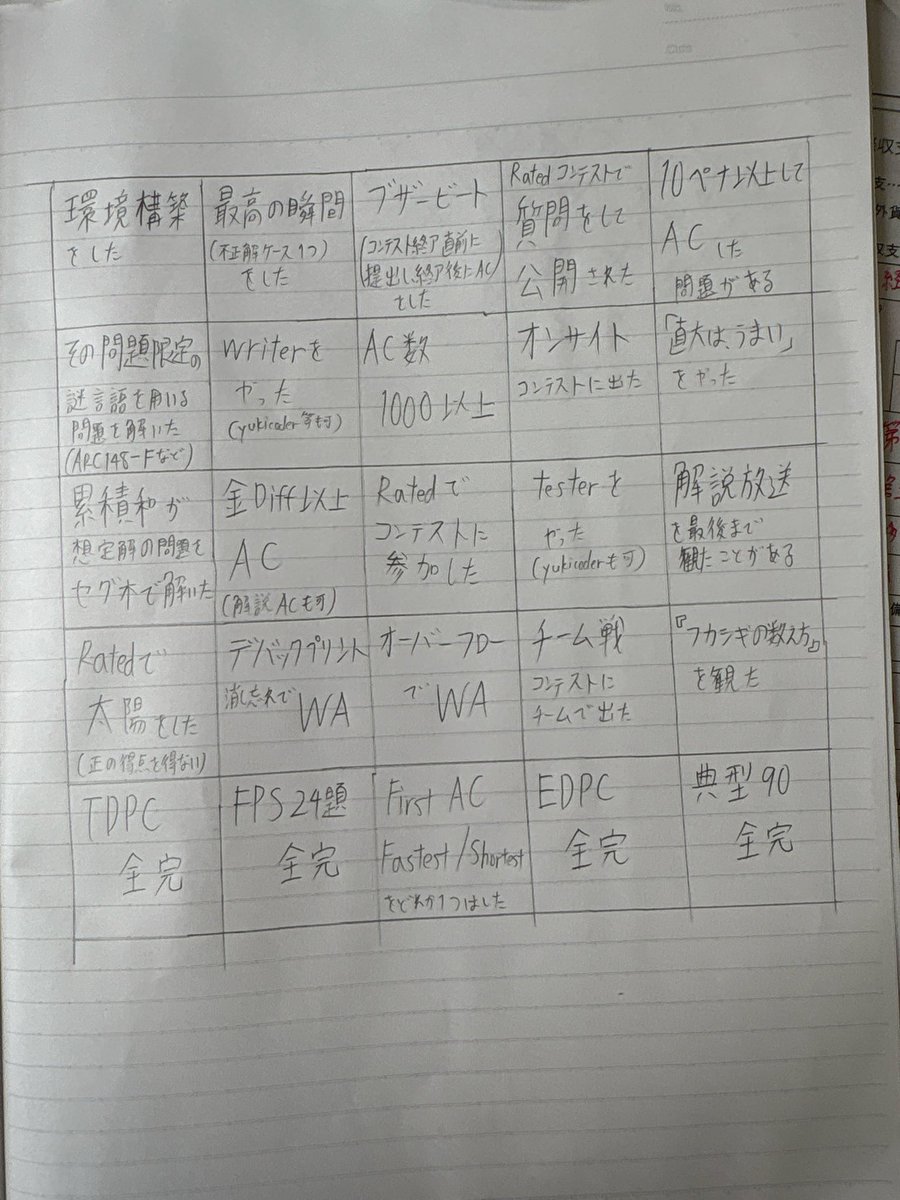 環境構築
をした
最高の瞬間
(不正解ケース1つ)
をした
ブザービート
(コンテスト終了直前に
提出し終了後にAC)
をした
Ratedコンテストで
質問をして
公開された
10ペナ以上して
ACした
問題がある
その問題限定の
謎言語を用いる
問題を解いた
(ARC148-Fなど)
writerを
やった
(yukicoder等も可)
AC数
1000以上
オンサイト
コンテストに出た
「直大は、うまい」
をやった
累積和が
想定解の問題を
セグ木で解いた
金Diff以上
AC
(解説ACも可)
Ratedで
コンテストに
参加した
testerを
やった
(yukicoderも可)
解説放送
を最後まで
観たことがある
Ratedで
太陽をした
(正の得点を得ない)
デバックプリント
消し忘れで
WA
オーバーフロー
でWA
チーム戦
コンテストに
チームで出た
『フカシギの数え方』
を観た
TDPC
全完
FPS24題
全完
First AC
Fastest/Shortest
をどれか1つはした
EDPC
全完
典型90
全完